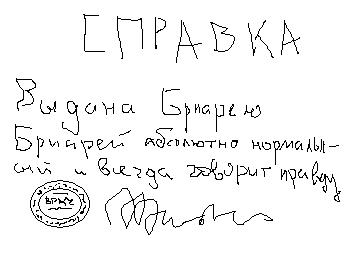 СПРАВКА
Выдана Бриарею
Бриарей абсолютно нормаль-
ный и всегда говорит правду
ВРАЧ